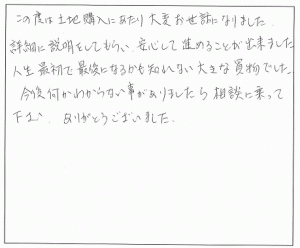 この度は土地購入にあたり大変お世話になりました.
詳細に説明をしてもらい、安心して進めることが出来ました
人生最初で最後になるかも知れない大きな買物でした。
今後何かわからない事がありましたら相談に乗って
下さい. ありがとうございました.